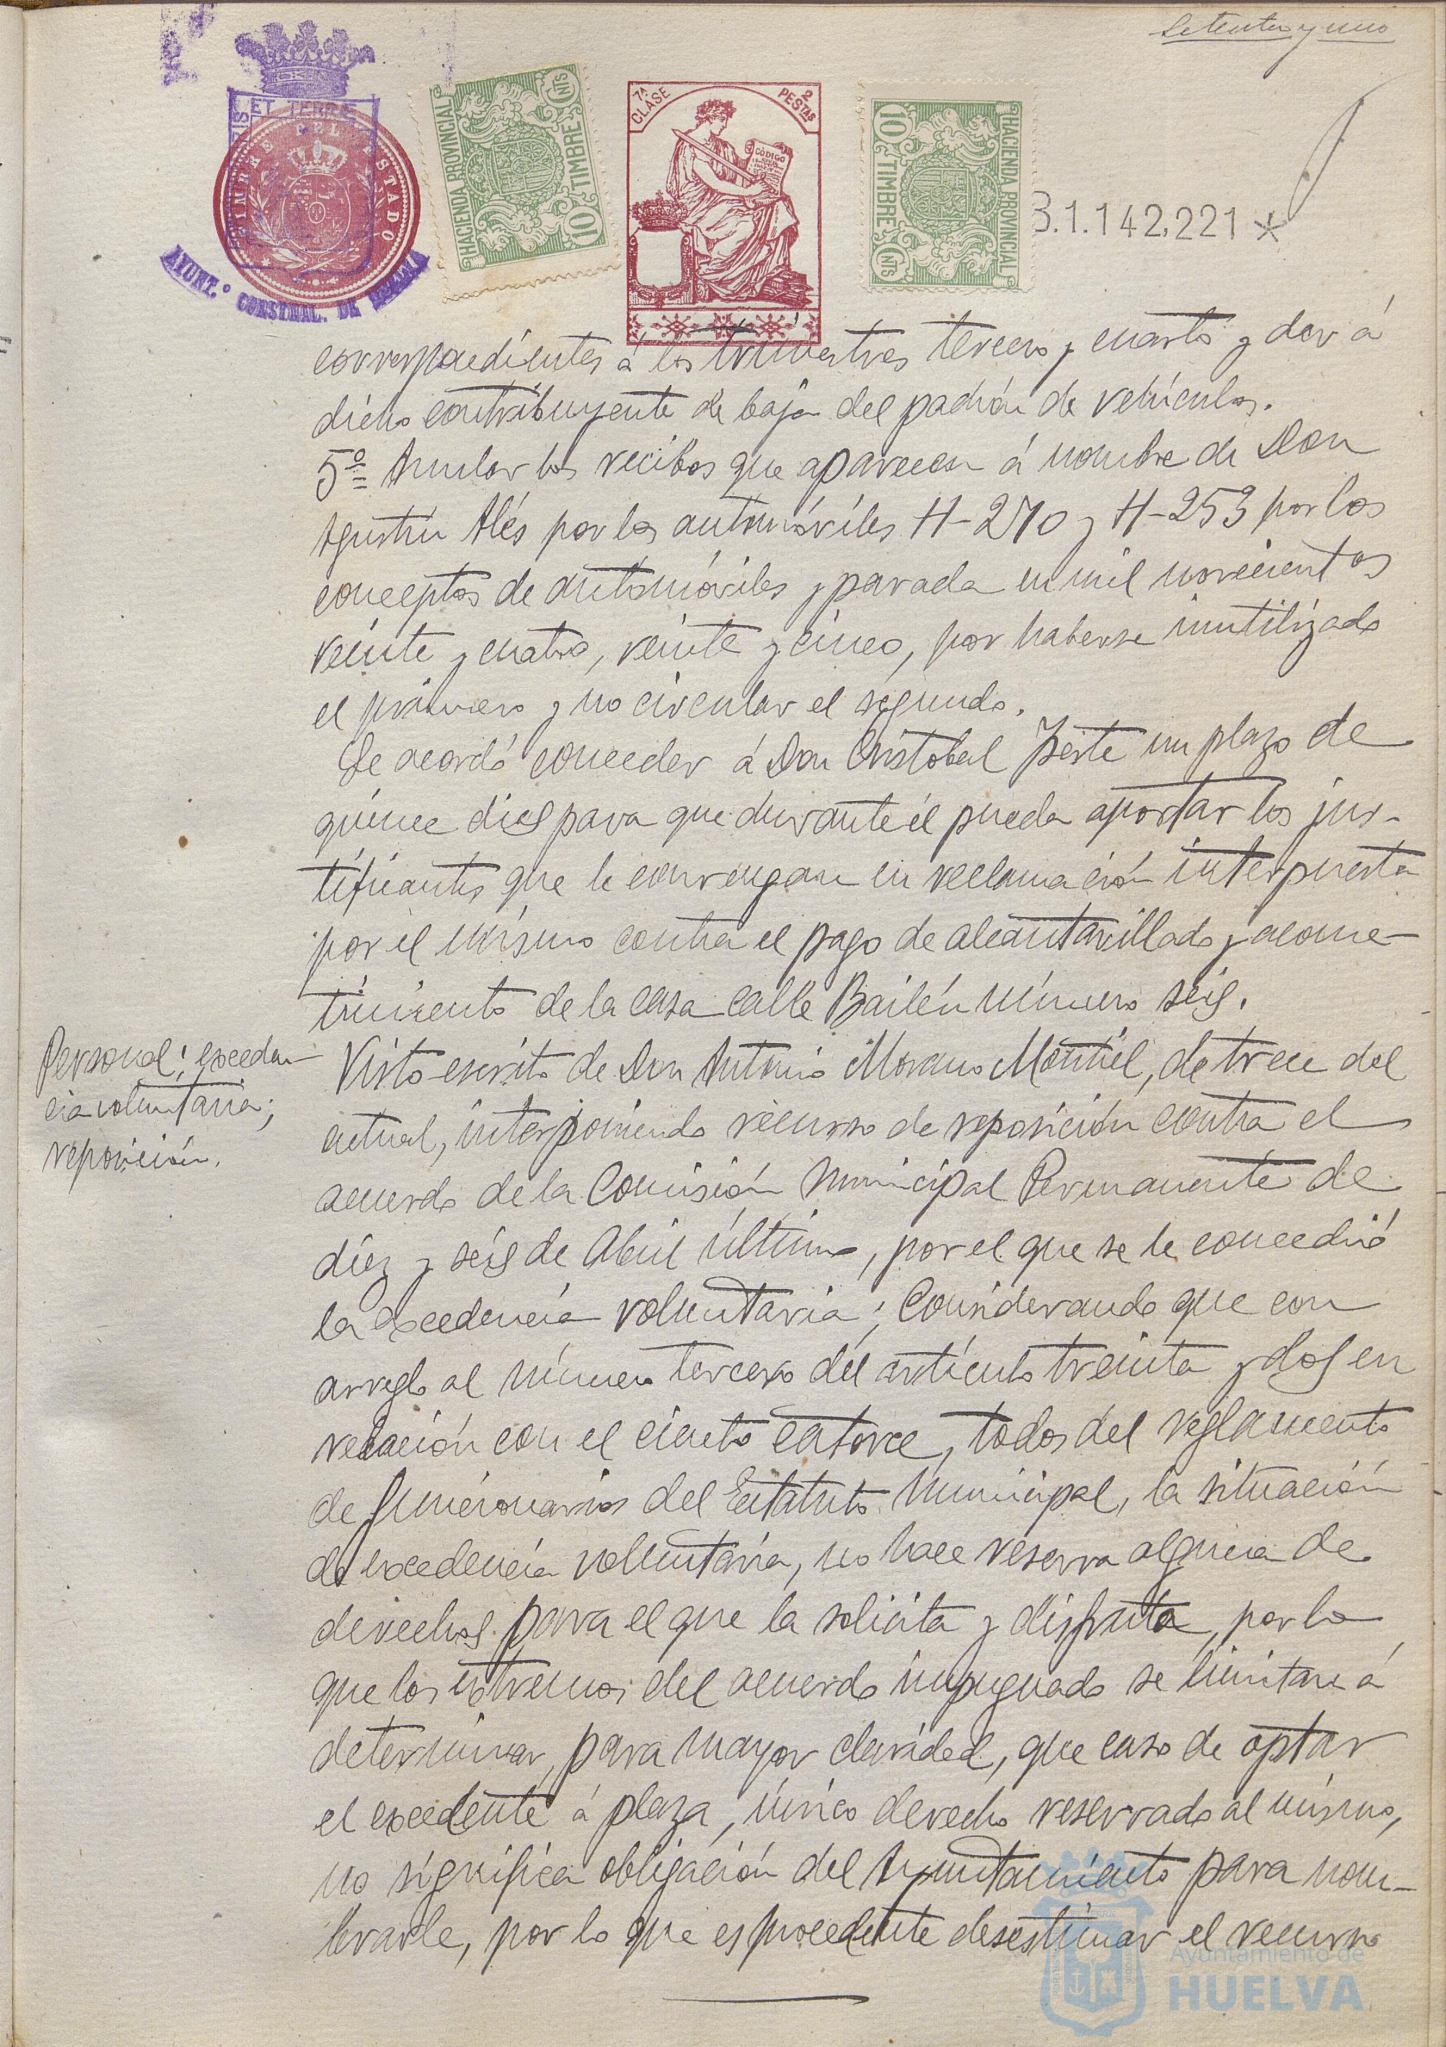 Setenta y uno
TIMBRE DEL ESTADO
AYUNT.º CONSTNAL. DE HUELVA
HACIENDA PROVINCIAL
TIMBRE 10 CNTS
7ª CLASE
2 PESTAS
CODIGO
10 CNTS TIMBRE
HACIENDA PROVINCIAL
B.1.142,221 *
correspondientes á los trimestres tercero y cuarto y dar á
dicho contribuyente de baja del padrón de vehículos.
5º= Anular los recibos que aparecen á nombre de Don
Agustín Alés por los automóviles H-270 y H-253 por los
conceptos de automóviles y parada en mil novecientos
veinte y cuatro, veinte y cinco, por haberse inutilizado
el primero y no circular el segundo.
Se acordó conceder á Don Cristobal un plazo de
quince dias para que durante él pueda aportar los jus-
tificantes que le convengan en reclamación interpuesta
por el mismo contra el pago de alcantarillado y acome-
timiento de la casa calle Bailén número seis.
Personal; exceden-
cia voluntaria;
reposición.
Visto escrito de Don Antonio Moreno Montiel, de trece del
actual, interponiendo recurso de reposición contra el
acuerdo de la Comisión Municipal Permanente de
diez y seis de Abril último, por el que se le concedió
la excedencia voluntaria; Considerando que con
arreglo al número tercero del artículo treinta y dos en
relación con el ciento catorce, todos del reglamento
de funcionarios del Estatuto Municipal, la situación
de excedencia voluntaria, no hace reserva alguna de
derechos para el que la solicita y disfruta, por lo
que los extremos del acuerdo impugnado se limitan á
determinar, para mayor claridad, que caso de optar
el excedente á plaza, único derecho reservado al mismo,
no significa obligación del Ayuntamiento para nom-
brarle, por lo que es procedente desestimar el recurso
Ayuntamiento de
HUELVA